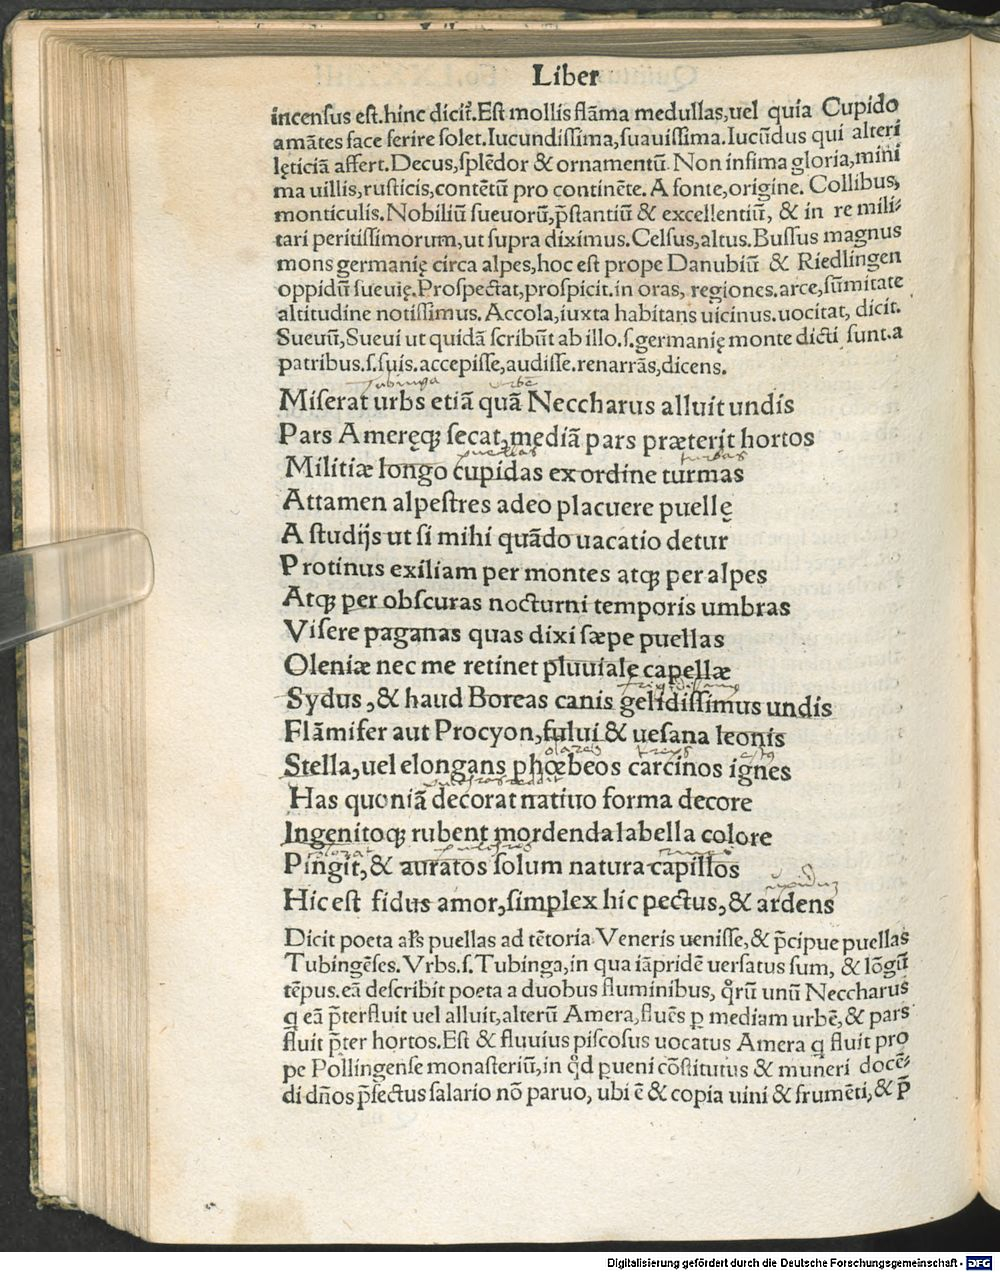 Liber
incensus est. hinc dicit̃. Est mollis flãma medullas, uel quia Cupido
amãtes face ferire solet. Iucundissima, suauissima. Iucũdus qui alteri
lęticiã affert. Decus, splẽdor & ornamentũ. Non infima gloria, mini
ma uillis, rusticis, contẽtũ pro continẽte. A fonte, origine. Collibus,
monticulis. Nobiliũ sueuorũ, p̃stantiũ & excellentiũ, & in re mili⸗
tari peritissimorum, ut supra diximus. Celsus, altus. Bussus magnus
mons germanię circa alpes, hoc est prope Danubiũ & Riedlingen
oppidũ sueuię. Prospectat, prospicit. in oras, regiones. arce, sũmitate
altitudine notissimus. Accola, iuxta habitans uicinus. uocitat, dicit.
Sueuũ, Sueui ut quidã scribũt ab illo. s. germanię monte dicti sunt. a
patribus. s. suis. accepisse, audisse. renarrãs, dicens.
Tubinga urbẽ
Miserat urbs etiã quã Neccharus alluit undis
Pars Ameręq; secat, mediã pars præterit hortos
puellas turbas
Militiæ longo cupidas ex ordine turmas
Attamen alpestres adeo placuere puellę
A studijs ut si mihi quãdo uacatio detur
Protinus exiliam per montes atq; per alpes
Atq; per obscuras nocturni temporis umbras
Visere paganas quas dixi sæpe puellas
Oleniæ nec me retinet pluuiale capellæ
frigidissimus
Sydus, & haud Boreas canis gelidissimus undis
Flãmifer aut Procyon, fului & uesana leonis
solares
Stella, uel elongans phœbeos carcinos ignes
pulchras reddit
Has quoniã decorat natiuo forma decore
Ingenitoq; rubent mordenda labella colore
colorat pulchros
Pingit, & auratos solum natura capillos
cupidum
Hic est fidus amor, simplex hic pectus, & ardens
Dicit poeta al̃s puellas ad tẽtoria Veneris uenisse, & p̃cipue puellas
Tubingẽses. Vrbs. s. Tubinga, in qua iãpridẽ uersatus sum, & lõgũ
tẽpus. eã describit poeta a duobus fluminibus, q̊rũ unũ Neccharus
q eã p̃terfluit uel alluit, alterũ Amera, fluẽs ꝑ mediam urbẽ, & pars
fluit p̃ter hortos. Est & fluuius piscosus uocatus Amera q fluit pro
pe Pollingense monasteriũ, in q̊d ꝑueni cõstitutus & muneri docẽ⸗
di dños p̃fectus salario nõ paruo, ubi ẽ & copia uini & frumẽti, & p̃
Digitalisierung gefördert durch die Deutsche Forschungsgemeinschaft - DFG